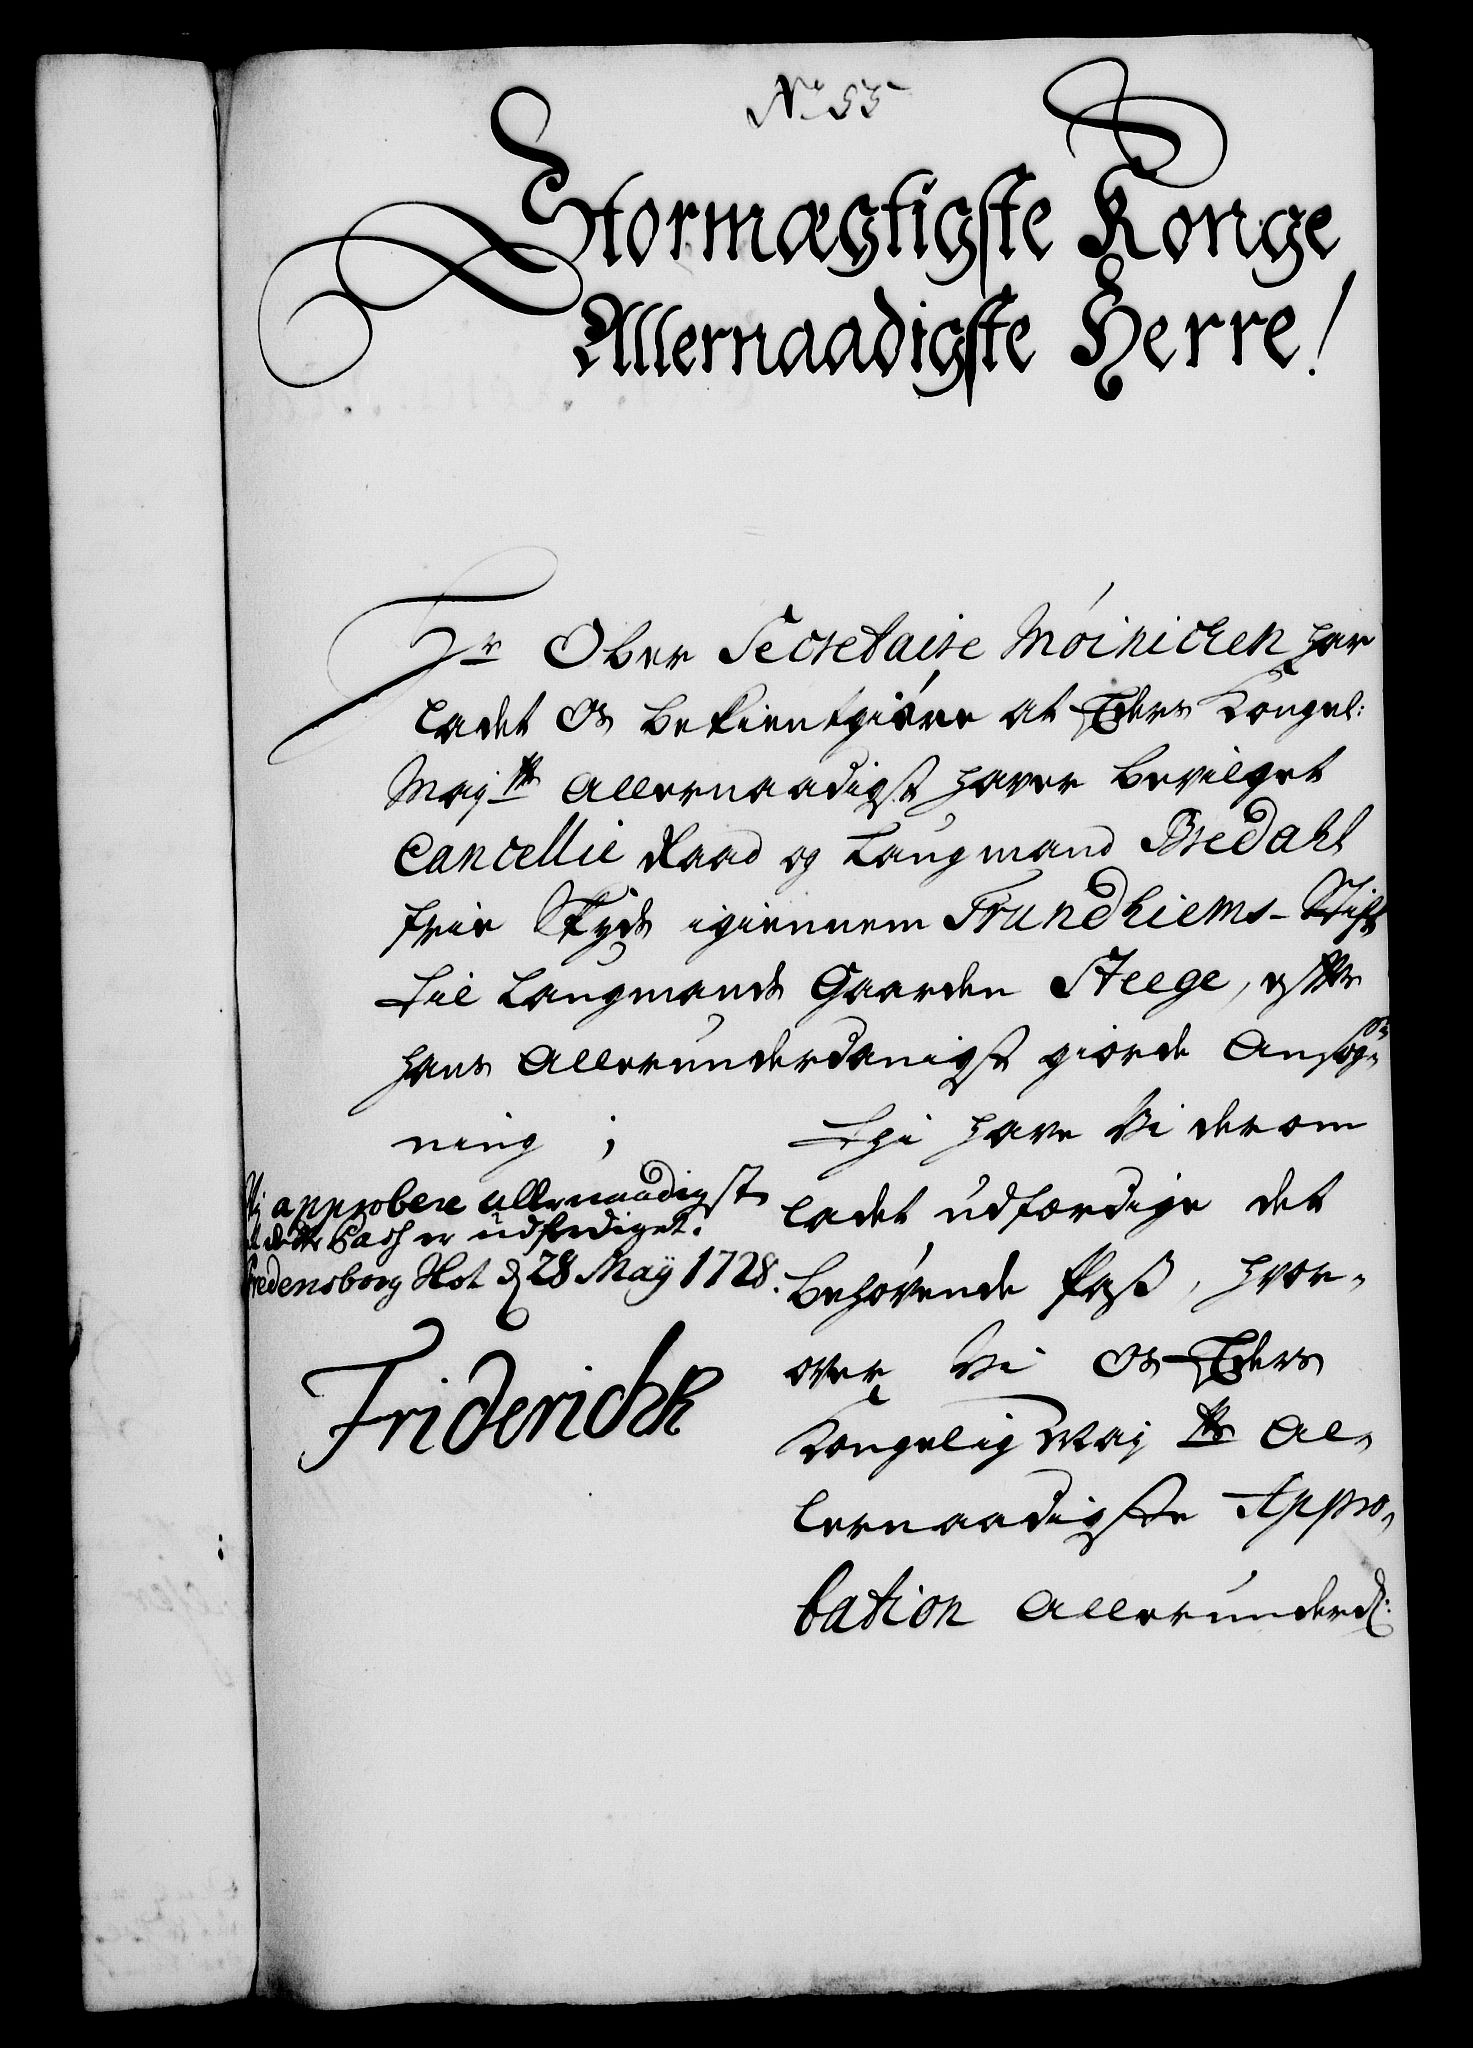 No 55
Stormægtigste Konge
Allernaadigste Herre!
Hr Ober Secretaire Möinichen har
ladet Os bekientgiöre at Eders Kongel:
Majts Allernaadigst haver bevilget
Cancellie Raad og Laugmand Bredahl
frie Skyds igiennem Trundhiems-Stift
til Laugmands Gaarden Steege, efter
hans Allerunderdanigst giorde Ansøg-
ning; Thi have Vi derom
ladet udfærdige det
behövende Pass, hvor-
over Vi Os Eders
Kongelig Majts Al-
lernaadigste Appro-
bation Allerunderd:
Vi approbere allernaadigst
at dette Pass er udferdiget.
Fredensborg Slot d 28 Maÿ 1728.
Friderich R